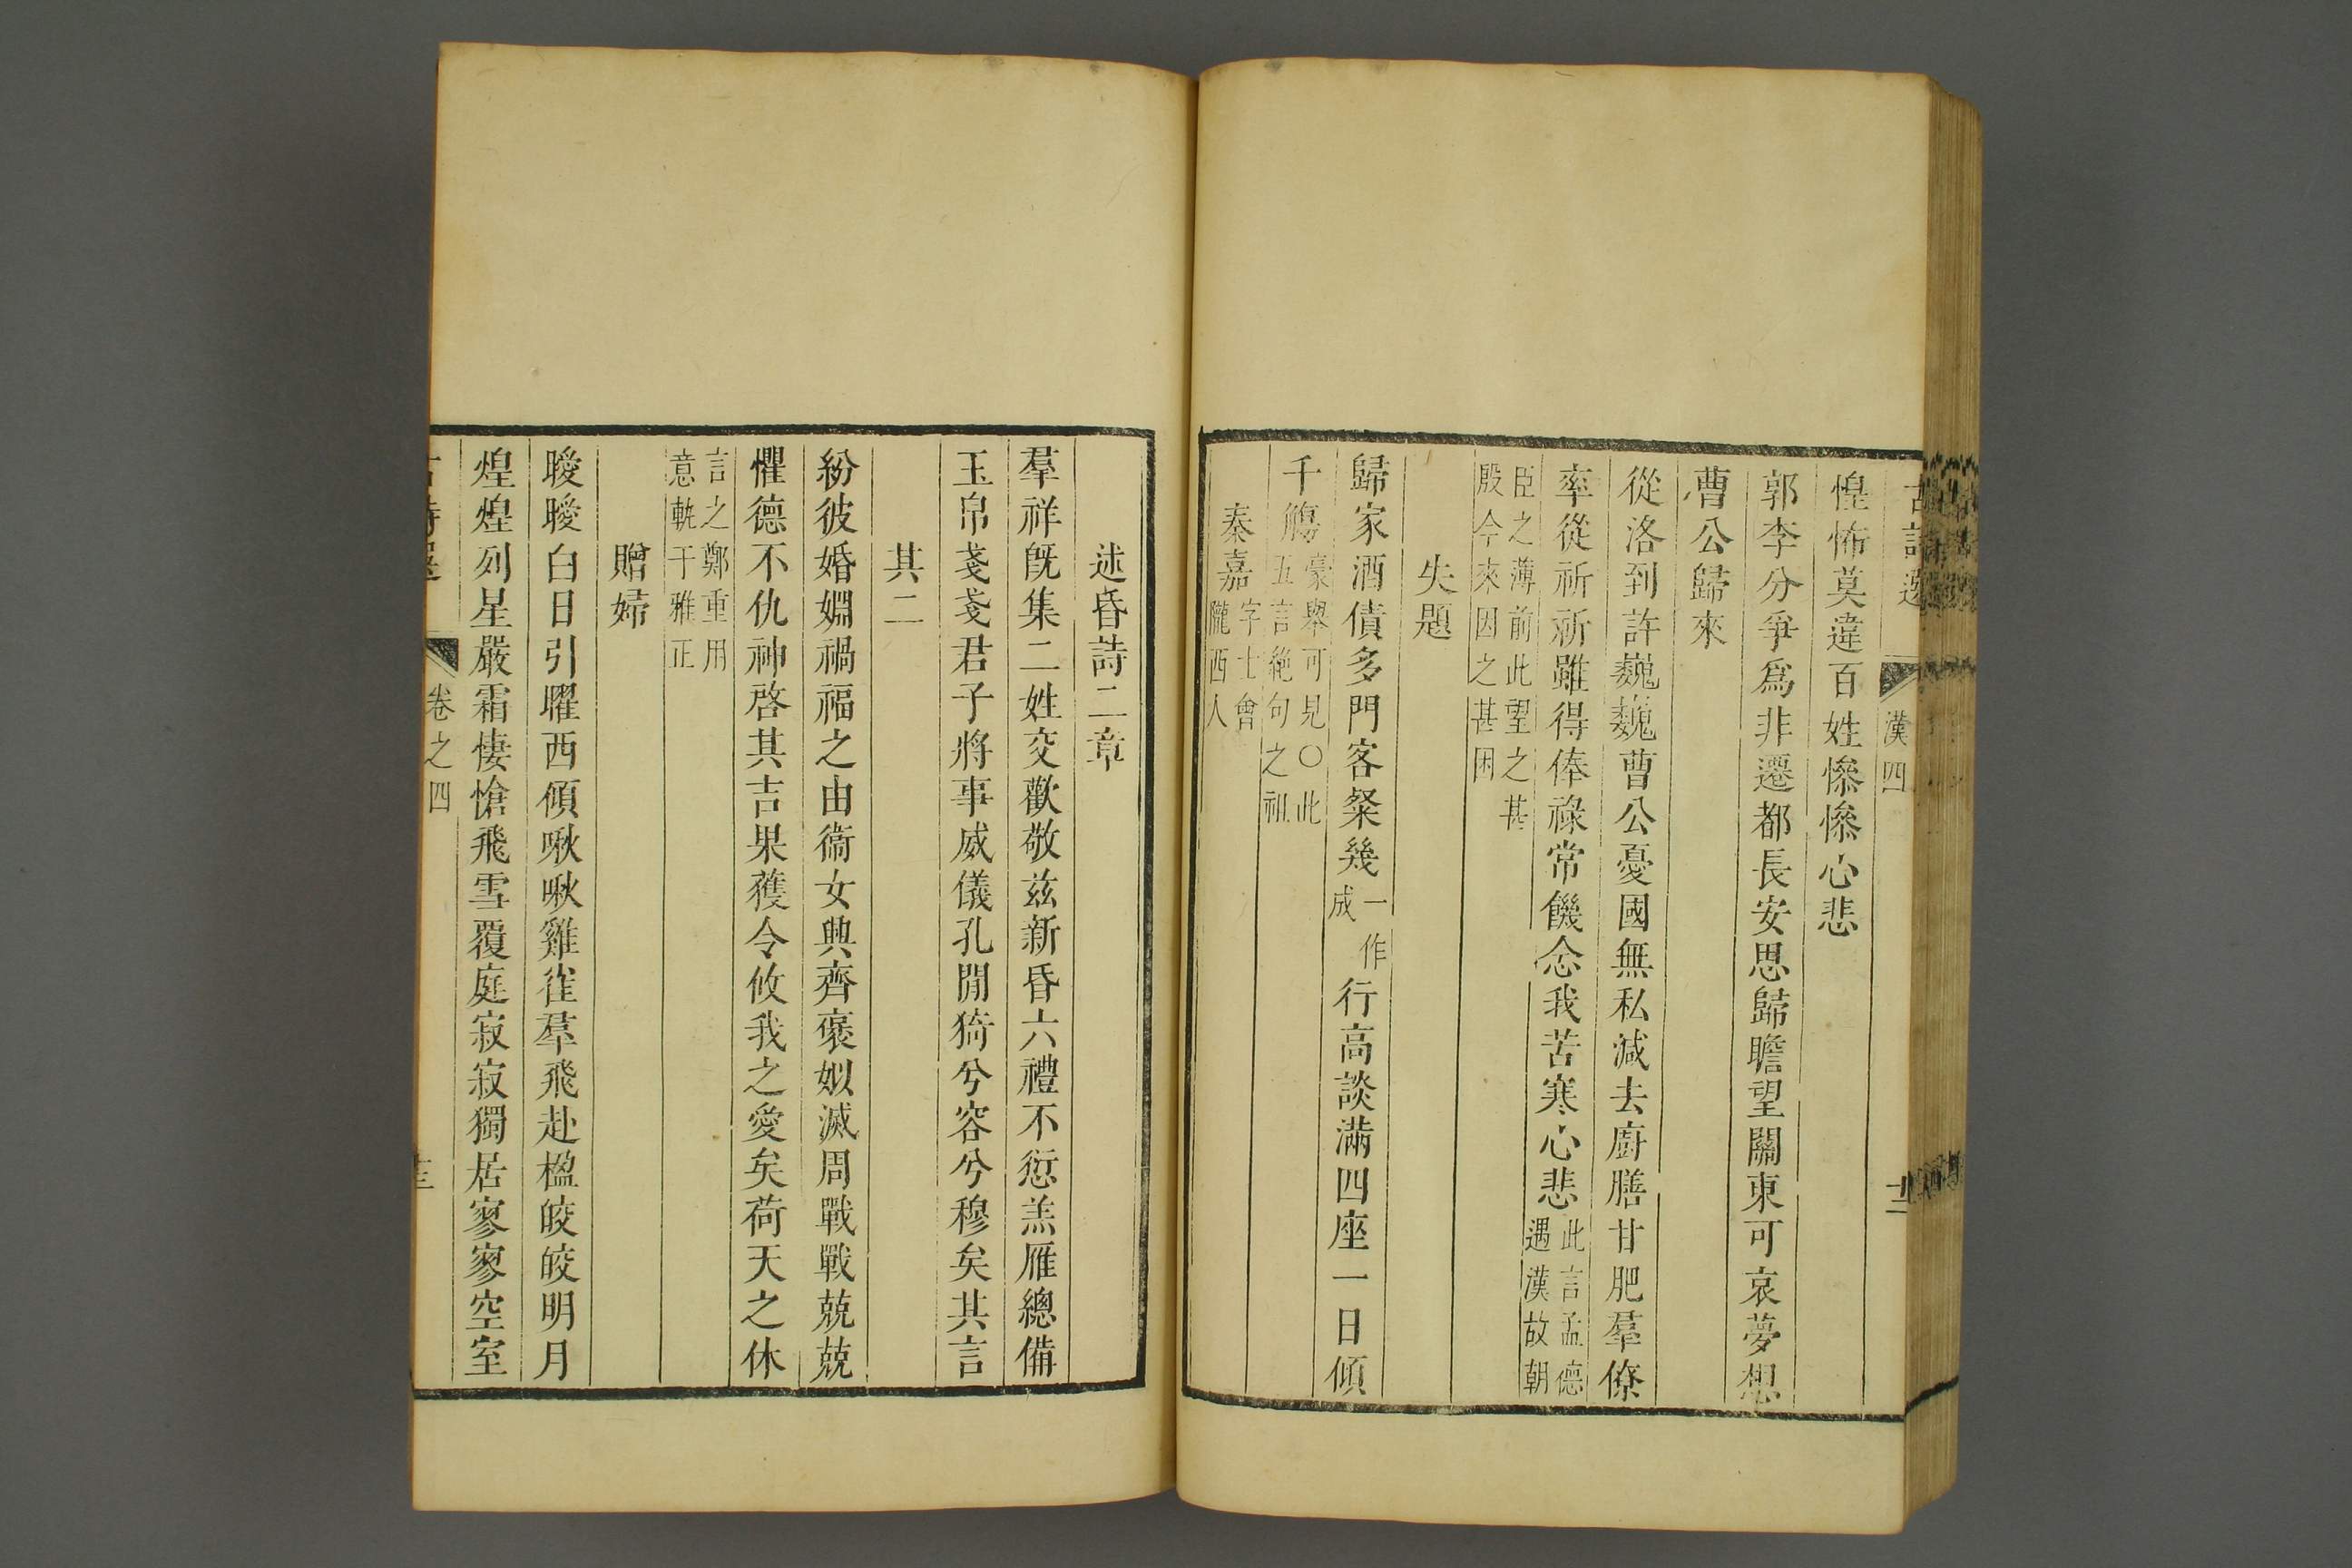 漢四
惶怖莫違百姓慘慘心悲
郭李分爭爲非遷都長安思歸瞻望關東可哀夢想
曹公歸來
從洛到許巍巍曹公憂國無私減去廚膳甘肥羣僚
率從祈祈雖得俸祿常饑念我苦寒心悲
此言孟德
遇漢故朝
臣之薄前此望之甚
殷今來因之甚困
失題
歸家酒債多門客粲幾
一作
成
行高談滿四座一日傾
千觴
豪舉可見○此
五言絶句之祖
秦嘉
字士會
隴西人
述昏詩二章
羣祥旣集二姓交歡敬茲新昏六禮不愆羔雁總備
玉帛戔戔君子將事威儀孔閒猗兮容兮穆矣其言
其二
紛彼婚姻禍福之由衞女興齊褒姒滅周戰戰兢兢
懼德不仇神啓其吉果獲令攸我之愛矣荷天之休
言之鄭重用
意軌于雅正
贈婦
曖曖白日引曜西傾啾啾雞雀羣飛赴楹皎皎明月
煌煌列星嚴霜悽愴飛雪覆庭寂寂獨居寥寥空室
卷之四